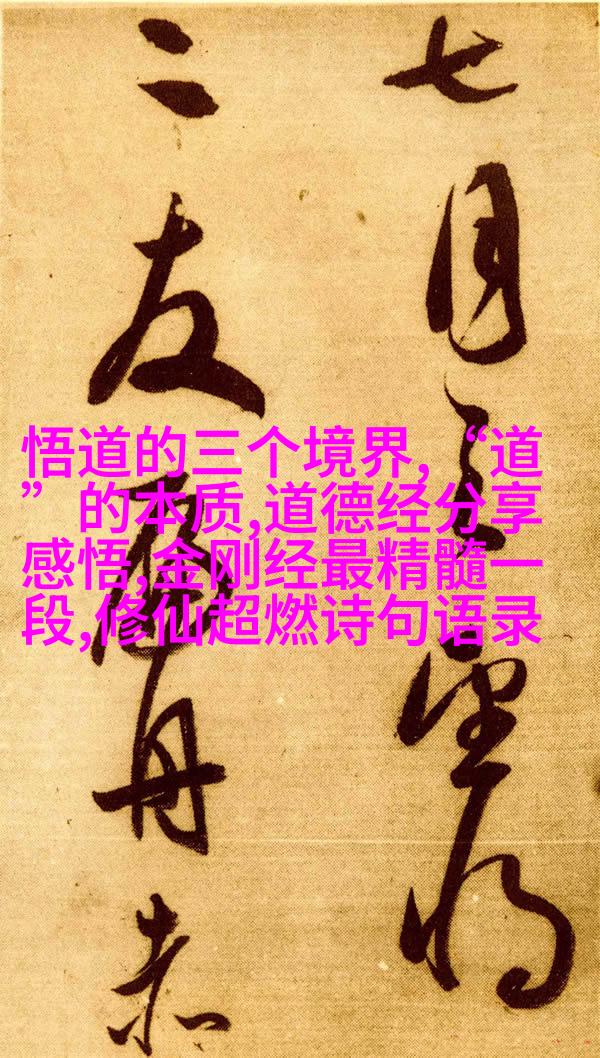 七月之望将
二友舟赤
悟道的三个境界,“道
”的本质,道德经分享
感悟,金刚经最精髓一
段,修仙超燃诗句语录